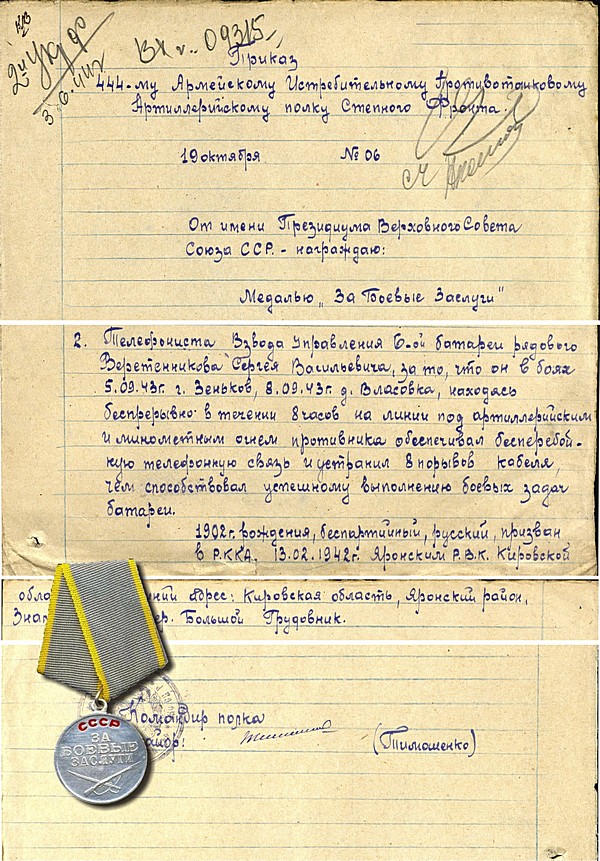 Вх. 09315
3.6.44г
Приказ
444-му Армейскому Истребительному Противотанковому
Артиллерийскому полку Степного Фронта.
19 октября № 06
От имени Президиума Верховного Совета
Союза ССР. - награждаю:
Медалью „За Боевые Заслуги"
2. Телефониста Взвода Управления 6-ой батареи рядового
Веретенникова Сергея Васильевича, за то, что он в боях
5.09.43г. г. Зеньков, 8.09.43г. д. Власовка, находясь
беспрерывно в течении 8 часов на линии под артиллерийским
и минометным огнем противника обеспечивал бесперебой-
ную телефонную связь и устранил 8 порывов кабеля,
чем способствовал успешному выполнению боевых задач
батареи.
1902г. рождения, беспартийный, русский, призван
в Р.К.К.А. 13.02.1942г. Яронским Р.В.К. Кировской
обла нии Адрес: Кировская область, Яронский район,
Зна ер. Большой Трудовник.
Командир полка
айор: (Тимошенко)
СССР
ЗА
БОЕВЫЕ
ЗАСЛУГИ